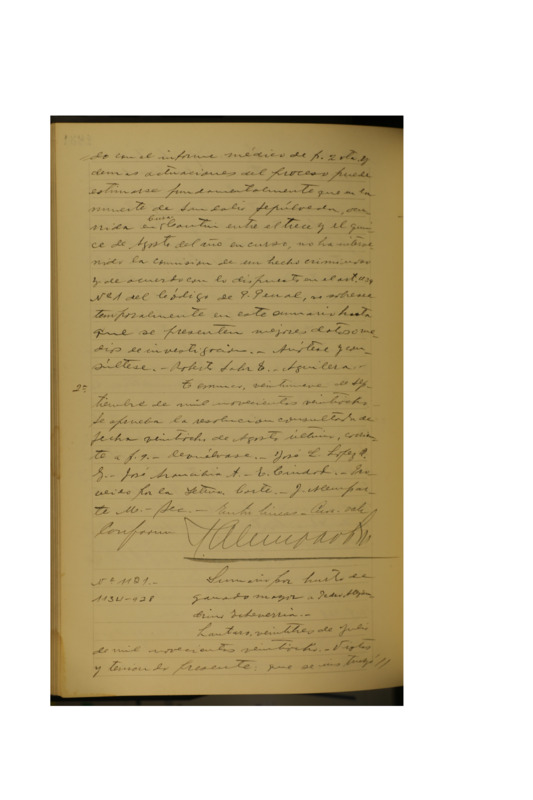 do con el informe médico de f. 2 vta. y
demas actuaciones del proceso puede
estimarse fundamentalmente que en la
muerte de Sepúlveda, ocu-
rrida en Cautin entre el trece y el quin-
ce de Agosto del año en curso, no ha interve-
nido la comision de un hecho criminoso
y de acuerdo con lo dispuesto en el art.
Nº 1 del Código de P. Penal, se sobresee
temporalmente en este sumario hasta
que se presenten mejores datos o me-
dios de investigación. - Anótese y con-
súltese. - Aguilera. -
2º Temuco, veintinueve de Sep-
tiembre de mil novecientos veintiocho.
Se aprueba la resolucion consultada de
fecha veintiocho de Agosto último, corrien-
te a f. 9. - Devuélvase. - José L. López
José A. - E. - Pro-
veido por la Iltma. Corte. - J.
te M. - Sec. - Entre lineas - vale
Conforme
Nº 1181. - Sumario por hurto de
ganado mayor a Pedro
Echeverria. -
Lautaro, veintitres de Julio
de mil novecientos veintiocho. - Vistos
y teniendo presente: que se